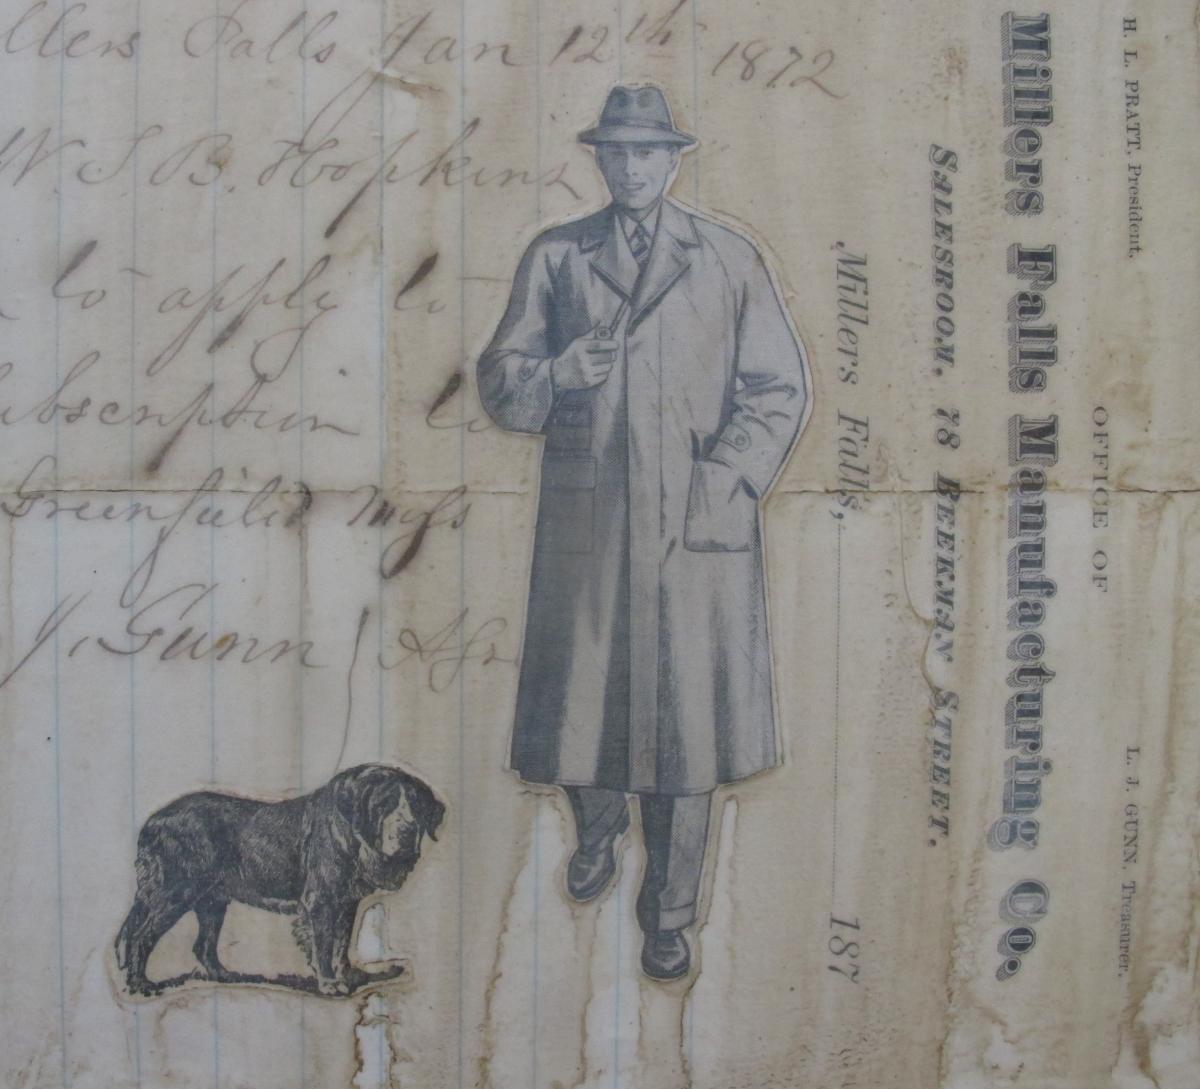 llers Falls Jan 12th 1872
W. S. B. Hopkins
to apply to
ubscription to
Greenfield Mass
J. Gunn Agn
H. L. PRATT, President.
L. J. GUNN, Treasurer.
OFFICE OF
Millers Falls Manufacturing Co.
SALESROOM, 78 BEEKMAN STREET.
Millers Falls, 187